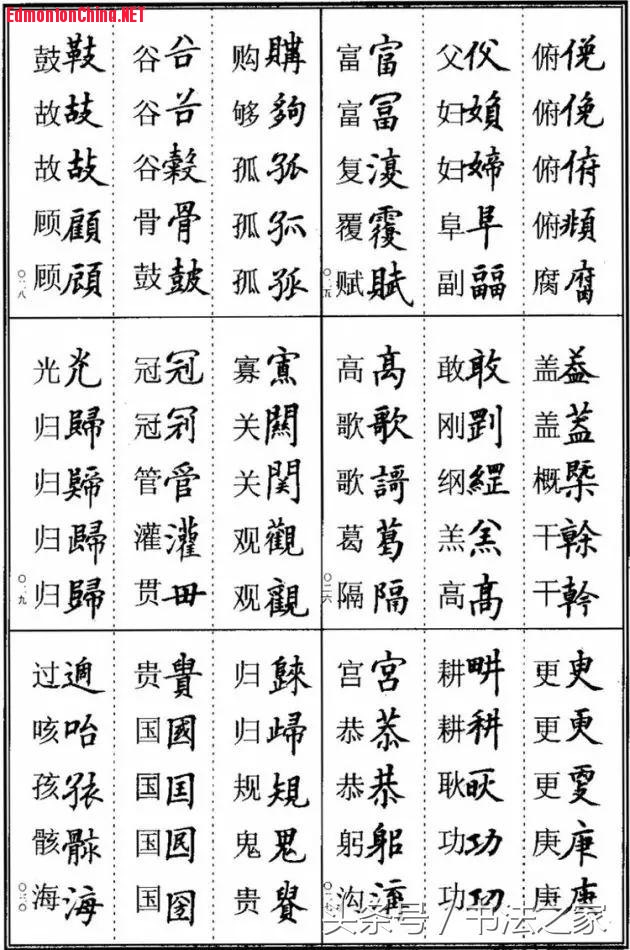 EdmontonChina.NET
俯俛
俯俛
俯俯
俯頫
腐腐
父㕛
妇
妇媂
阜阜
副
富富
富冨
复
覆覆
赋賦
〇二五
盖葢
盖蓋
概槩
干榦
干幹
敢敢
刚
纲
羔羔
高髙
高高
歌歌
歌謌
葛葛
隔隔
〇二六
更㪅
更更
更
庚庚
庚庚
耕畊
耕耕
耿耿
功功
功
宫宮
恭恭
恭恭
躬躳
沟
购購
够夠
孤孤
孤孤
孤孤
谷谷
谷谷
谷穀
骨骨
鼓皷
鼓鼓
故故
故故
顾顧
顾顧
〇二八
寡
关關
关関
观觀
观觀
冠冠
冠
管管
灌灌
贯毌
光光
归歸
归
归歸
归歸
〇二九
归
归
规規
鬼鬼
贵貴
贵貴
国國
国囯
国
国圀
过過
咳咍
孩孩
骸骸
海海
〇三〇
头条号/书法之家